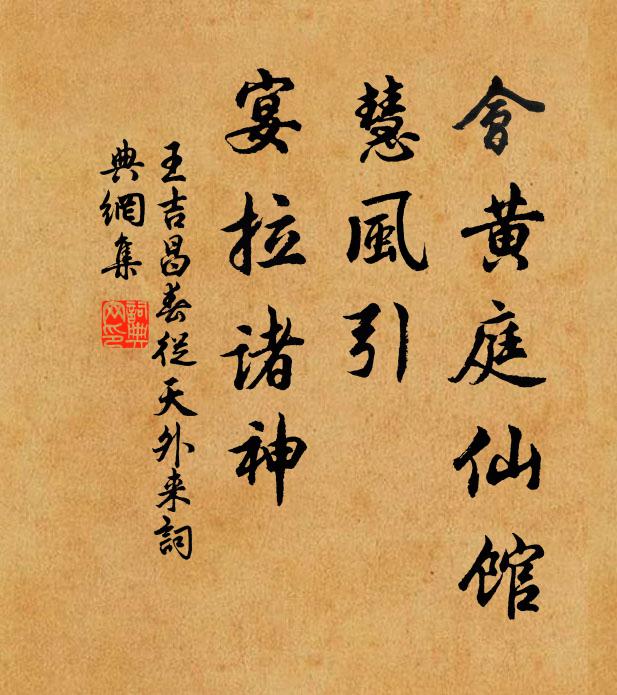 會黄庭仙館
慧風引
宴拉諸神
王吉昌春從天外来詞
典網集
詞典
网印